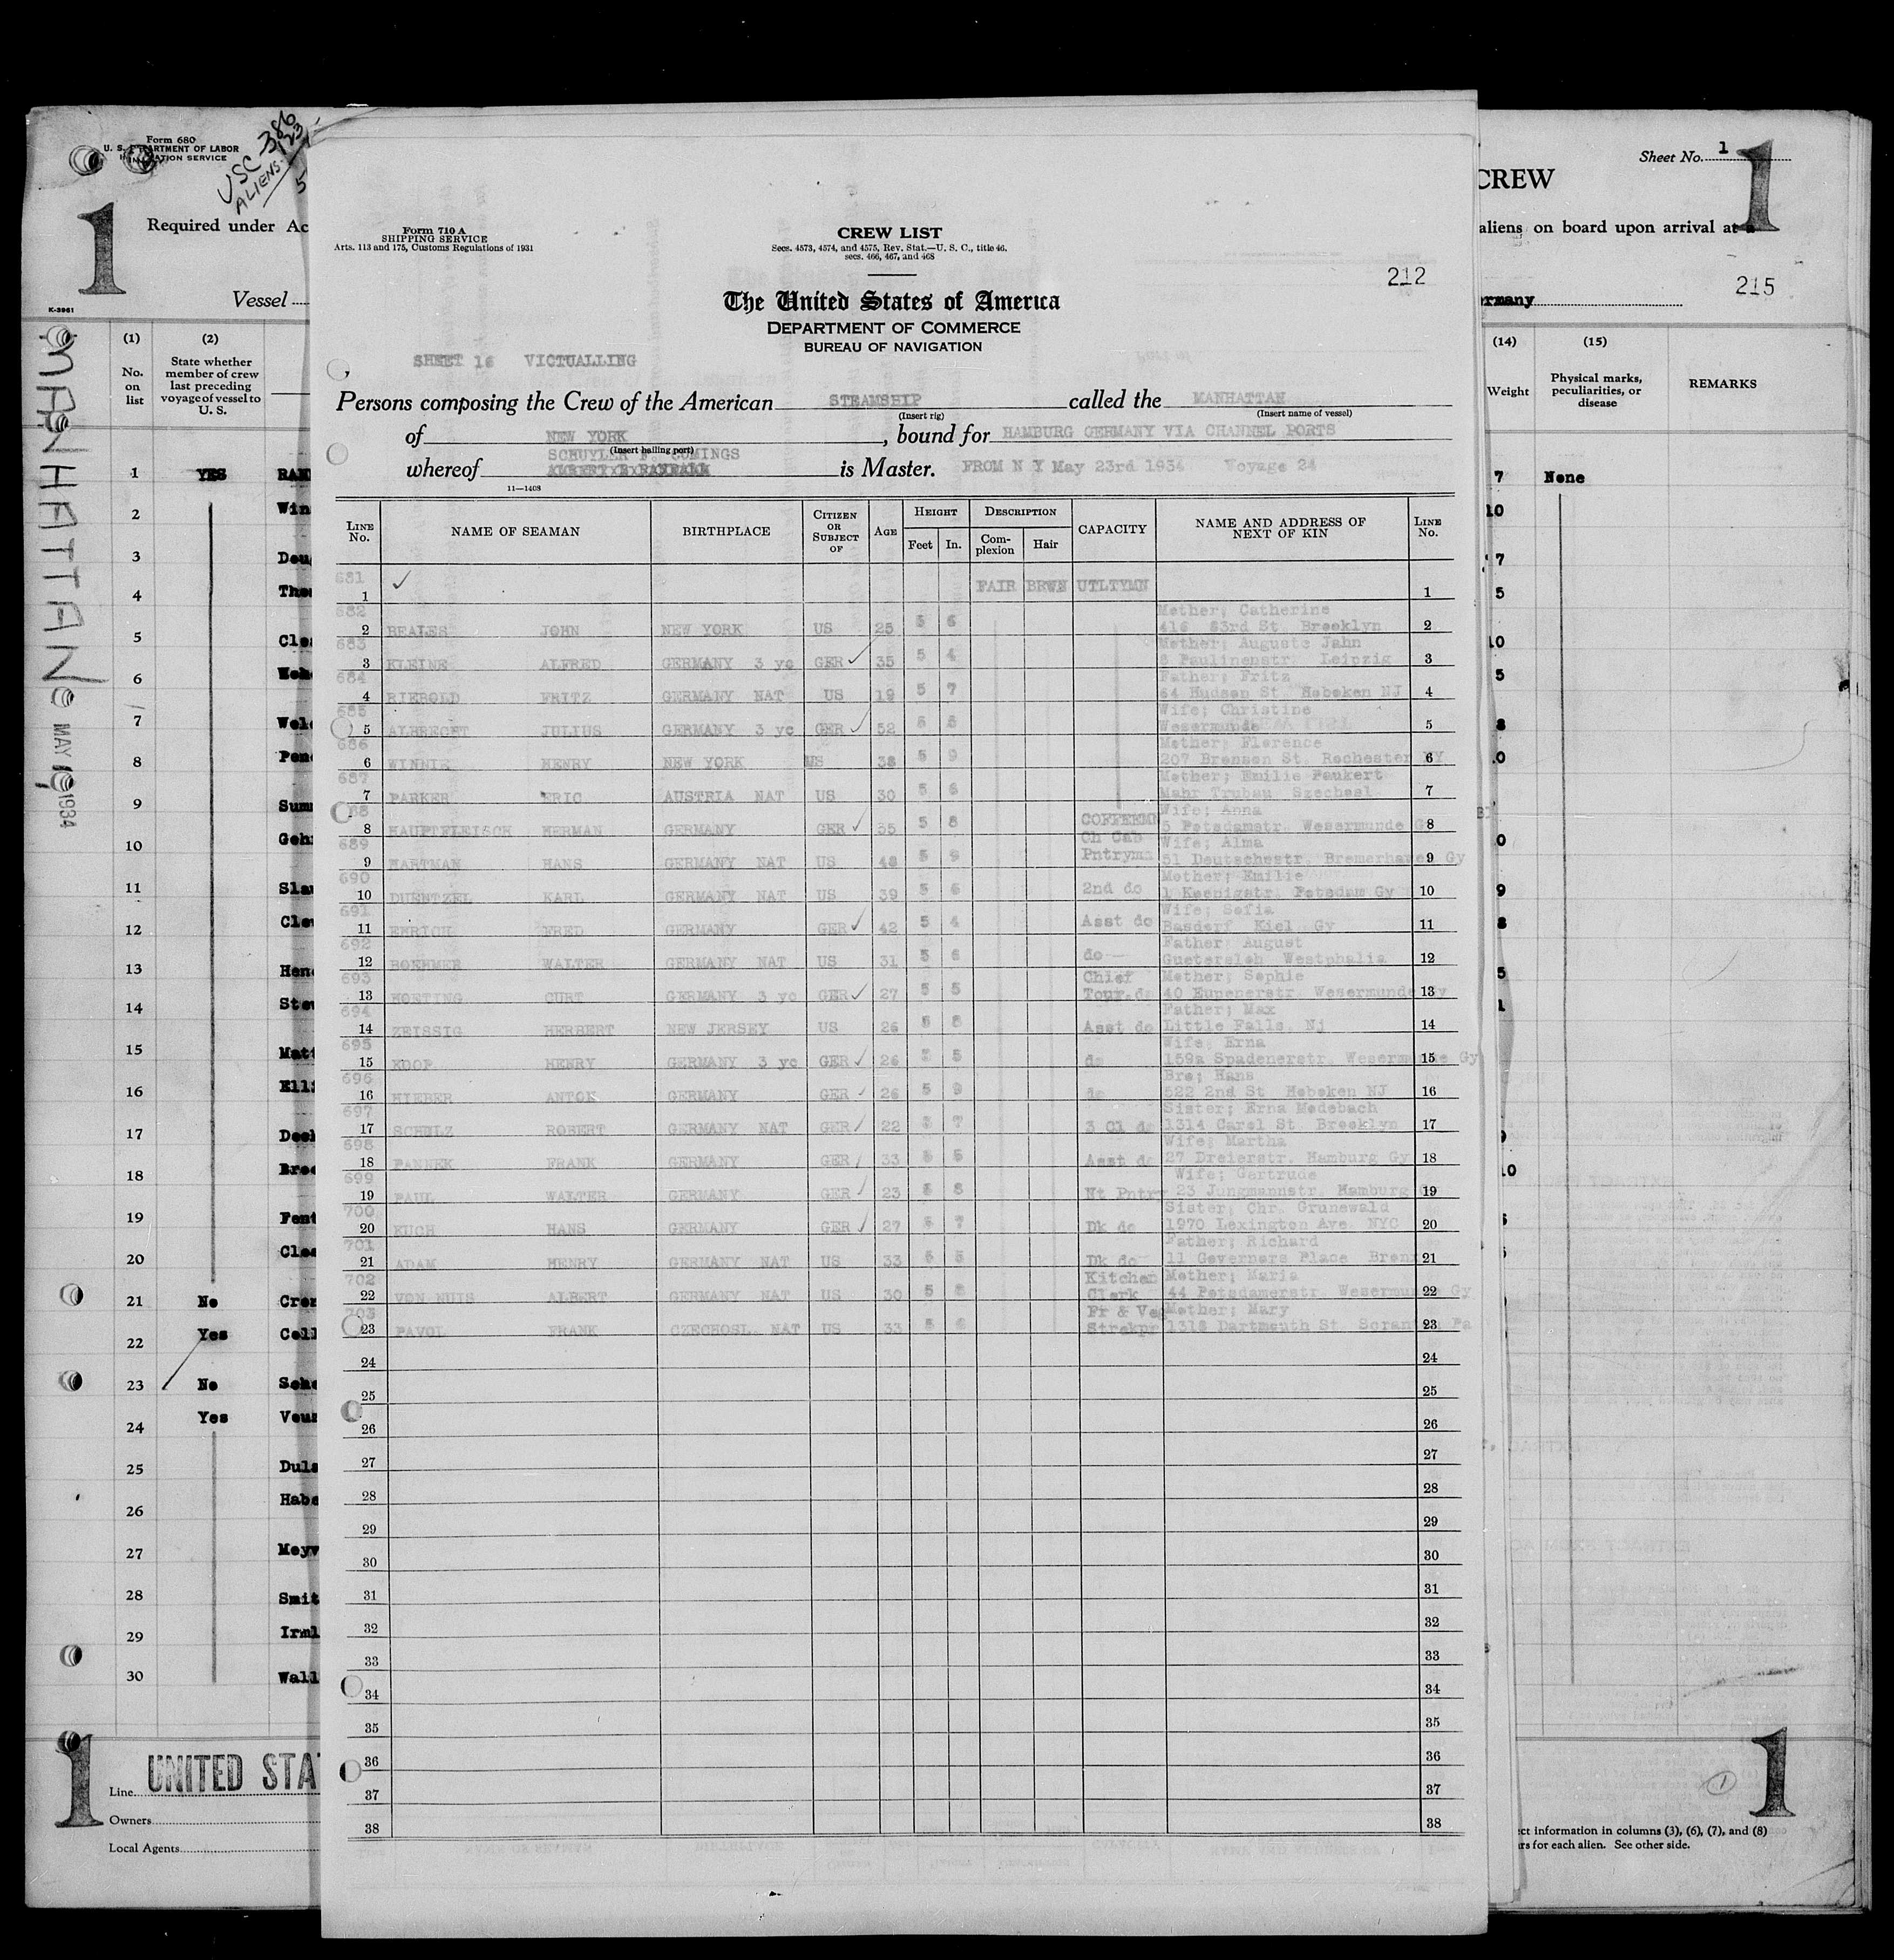 Form 680
U. S. DEPARTMENT OF LABOR
IMMIGRATION SERVICE
USC - 386
ALIENS. 123
5
1
Required under Ac
Vessel
K-3961
MANHATTAN
MAY 1934
(1)
No.
on
list
(2)
State whether
member of crew
last preceding
voyage of vessel to
U. S.
1 YES RAN
2 Win
3 Doug
4 Thom
5 Clea
6
7 Wel
8 Pen
9 Sum
10 Geh
11 Sla
12 Cle
13 Hen
14 Ste
15 Matt
16 Elli
17
18
19 Fent
20 Clea
21 No
22 Yes
23 No
24 Yes
25 Duls
26 Habe
27
28 Smit
29 Irml
30 Wall
1
UNITED STA
Line
Owners
Local Agents
Form 710 A
SHIPPING SERVICE
Arts. 113 and 175, Customs Regulations of 1931
CREW LIST
Secs. 4573, 4574, and 4575, Rev. Stat.—U. S. C., title 46,
secs. 466, 467, and 468
212
The United States of America
DEPARTMENT OF COMMERCE
BUREAU OF NAVIGATION
SHEET 16 VICTUALLING
Persons composing the Crew of the American STEAMSHIP called the MANHATTAN
(Insert rig) (Insert name of vessel)
of NEW YORK, bound for HAMBURG GERMANY VIA CHANNEL PORTS
(Insert hailing port)
SCHUYLER F. CUMINGS
whereof ALBERT B RANDALL is Master. FROM N Y May 23rd 1934 Voyage 24
11—1408
LINE No. NAME OF SEAMAN BIRTHPLACE CITIZEN OR SUBJECT OF AGE HEIGHT Feet In. DESCRIPTION Complexion Hair CAPACITY NAME AND ADDRESS OF NEXT OF KIN LINE No.
681
1 FAIR BRWN UTLTYMN 1
682 Mother; Catherine
2 BEALES JOHN NEW YORK US 25 5 6 416 63rd St. Brooklyn 2
683 Mother; Auguste Jahn
3 KLEINE ALFRED GERMANY 3 yc GER 35 5 4 8 Paulinenstr. Leipzig 3
684 Father; Fritz
4 RIEBOLD FRITZ GERMANY NAT US 19 5 7 64 Hudson St. Hoboken NJ 4
685 Wife; Christine
5 ALBRECHT JULIUS GERMANY 3 yc GER 52 5 5 Wesermunde 5
686 Mother; Florence
6 WINNIE HENRY NEW YORK US 38 5 9 207 Bronson St. Rochester NY 6
687 Mother; Emilie Paukert
7 PARKER ERIC AUSTRIA NAT US 30 5 6 Mahr Trubau Szechosl. 7
688 Wife; Anna
8 HAUPTFLEISCH HERMAN GERMANY GER 35 5 8 COFFEEMN 5 Potsdamstr. Wesermunde G 8
689 Ch Cab Wife; Alma
9 HARTMAN HANS GERMANY NAT US 48 5 9 Pntrymn 51 Deutschestr. Bremerhaven Gy 9
690 Mother; Emilie
10 DUENTZEL KARL GERMANY NAT US 39 5 6 2nd do 1 Koenigstr. Potsdam Gy 10
691 Wife; Sofia
11 EHRICH FRED GERMANY GER 42 5 4 Asst do Basdorf Kiel Gy 11
692 Father August
12 BOEHMER WALTER GERMANY NAT US 31 5 6 do Guetersloh Westphalia 12
693 Chief Mother; Sophie
13 HOETING CURT GERMANY 3 yc GER 27 5 5 Tour. do 40 Eupenerstr. Wesermunde Gy 13
694 Father; Max
14 ZEISSIG HERBERT NEW JERSEY US 26 5 8 Asst do Little Falls, Nj 14
695 Wife; Erna
15 KOOP HENRY GERMANY 3 yc GER 26 5 5 do 159a Spadenerstr. Wesermunde Gy 15
696 Bro; Hans
16 HIEBER ANTON GERMANY GER 26 5 9 do 522 2nd St Hoboken NJ 16
697 Sister; Erna Medebach
17 SCHULZ ROBERT GERMANY NAT GER 22 5 7 3 Cl do 1314 Carol St. Brooklyn 17
698 Wife; Martha
18 PANNEK FRANK GERMANY GER 33 5 5 Asst do 27 Dreierstr. Hamburg Gy 18
699 Wife; Gertrude
19 PAUL WALTER GERMANY GER 23 5 8 Nt Pntry 23 Jungmannstr. Hamburg 19
700 Sister; Chr. Grunewald
20 KUCH HANS GERMANY GER 27 5 7 Dk do 1970 Lexington Ave. NYC 20
701 Father; Richard
21 ADAM HENRY GERMANY NAT US 33 5 5 Dk do 11 Governors Place Bronx 21
702 Kitchen Mother; Maria
22 VON NUIS ALBERT GERMANY NAT US 30 5 8 Clerk 44 Potsdamerstr. Wesermunde Gy 22
703 Fr & Veg Mother; Mary
23 PAVOL FRANK CZECHOSL. NAT US 33 5 6 Strekpr 1318 Dartmouth St. Scranton Pa 23
24 24
25 25
26 26
27 27
28 28
29 29
30 30
31 31
32 32
33 33
34 34
35 35
36 36
37 37
38 38
Sheet No. 1
1
CREW
aliens on board upon arrival at a
215
ermany
(14)
Weight
(15)
Physical marks,
peculiarities, or
disease
REMARKS
7 None
10
7
5
10
5
8
0
0
9
8
5
1
10
1
1
ect information in columns (3), (6), (7), and (8)
rs for each alien. See other side.